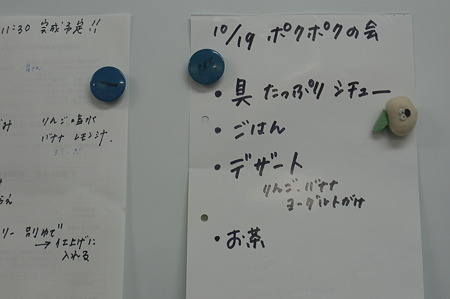 11:30 完成予定!!
りんご・塩水
バナナ レモン汁
リー 別ゆで
→仕上げに
入れる
10/19 ポクポクの会
・具たっぷりシチュー
・ごはん
・デザート
りんご・バナナ
ヨーグルトがけ
・お茶